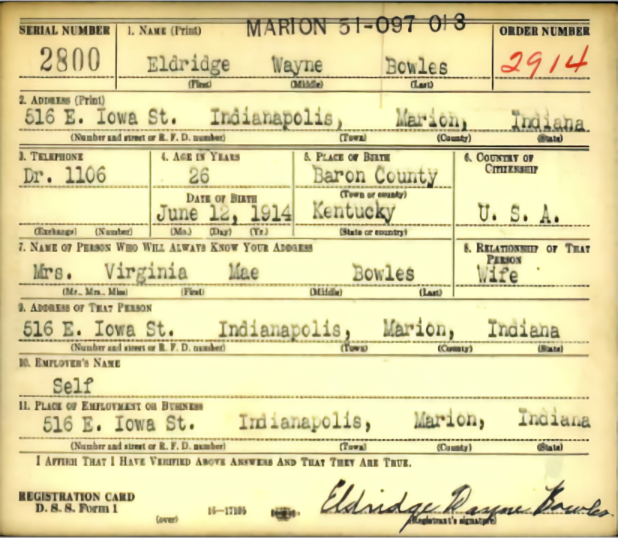 MARION 51-097 013
SERIAL NUMBER 1. NAME (Print) ORDER NUMBER
2800 Eldridge Wayne Bowles 2914
(First) (Middle) (Last)
2. ADDRESS (Print)
516 E. Iowa St. Indianapolis, Marion, Indiana
(Number and street or R. F. D. number) (Town) (County) (State)
3. TELEPHONE 4. AGE IN YEARS 5. PLACE OF BIRTH 6. COUNTRY OF CITIZENSHIP
Dr. 1106 26 Baron County
DATE OF BIRTH (Town or county)
June 12, 1914 Kentucky U. S. A.
(Exchange) (Number) (Mo.) (Day) (Yr.) (State or country)
7. NAME OF PERSON WHO WILL ALWAYS KNOW YOUR ADDRESS 8. RELATIONSHIP OF THAT PERSON
Mrs. Virginia Mae Bowles Wife
(Mr., Mrs., Miss) (First) (Middle) (Last)
9. ADDRESS OF THAT PERSON
516 E. Iowa St. Indianapolis, Marion, Indiana
(Number and street or R. F. D. number) (Town) (County) (State)
10. EMPLOYER'S NAME
Self
11. PLACE OF EMPLOYMENT OR BUSINESS
516 E. Iowa St. Indianapolis, Marion, Indiana
(Number and street or R. F. D. number) (Town) (County) (State)
I AFFIRM THAT I HAVE VERIFIED ABOVE ANSWERS AND THAT THEY ARE TRUE.
REGISTRATION CARD
D. S. S. Form 1 Eldridge Wayne Bowles
(over) 16-17105 (Registrant's signature)